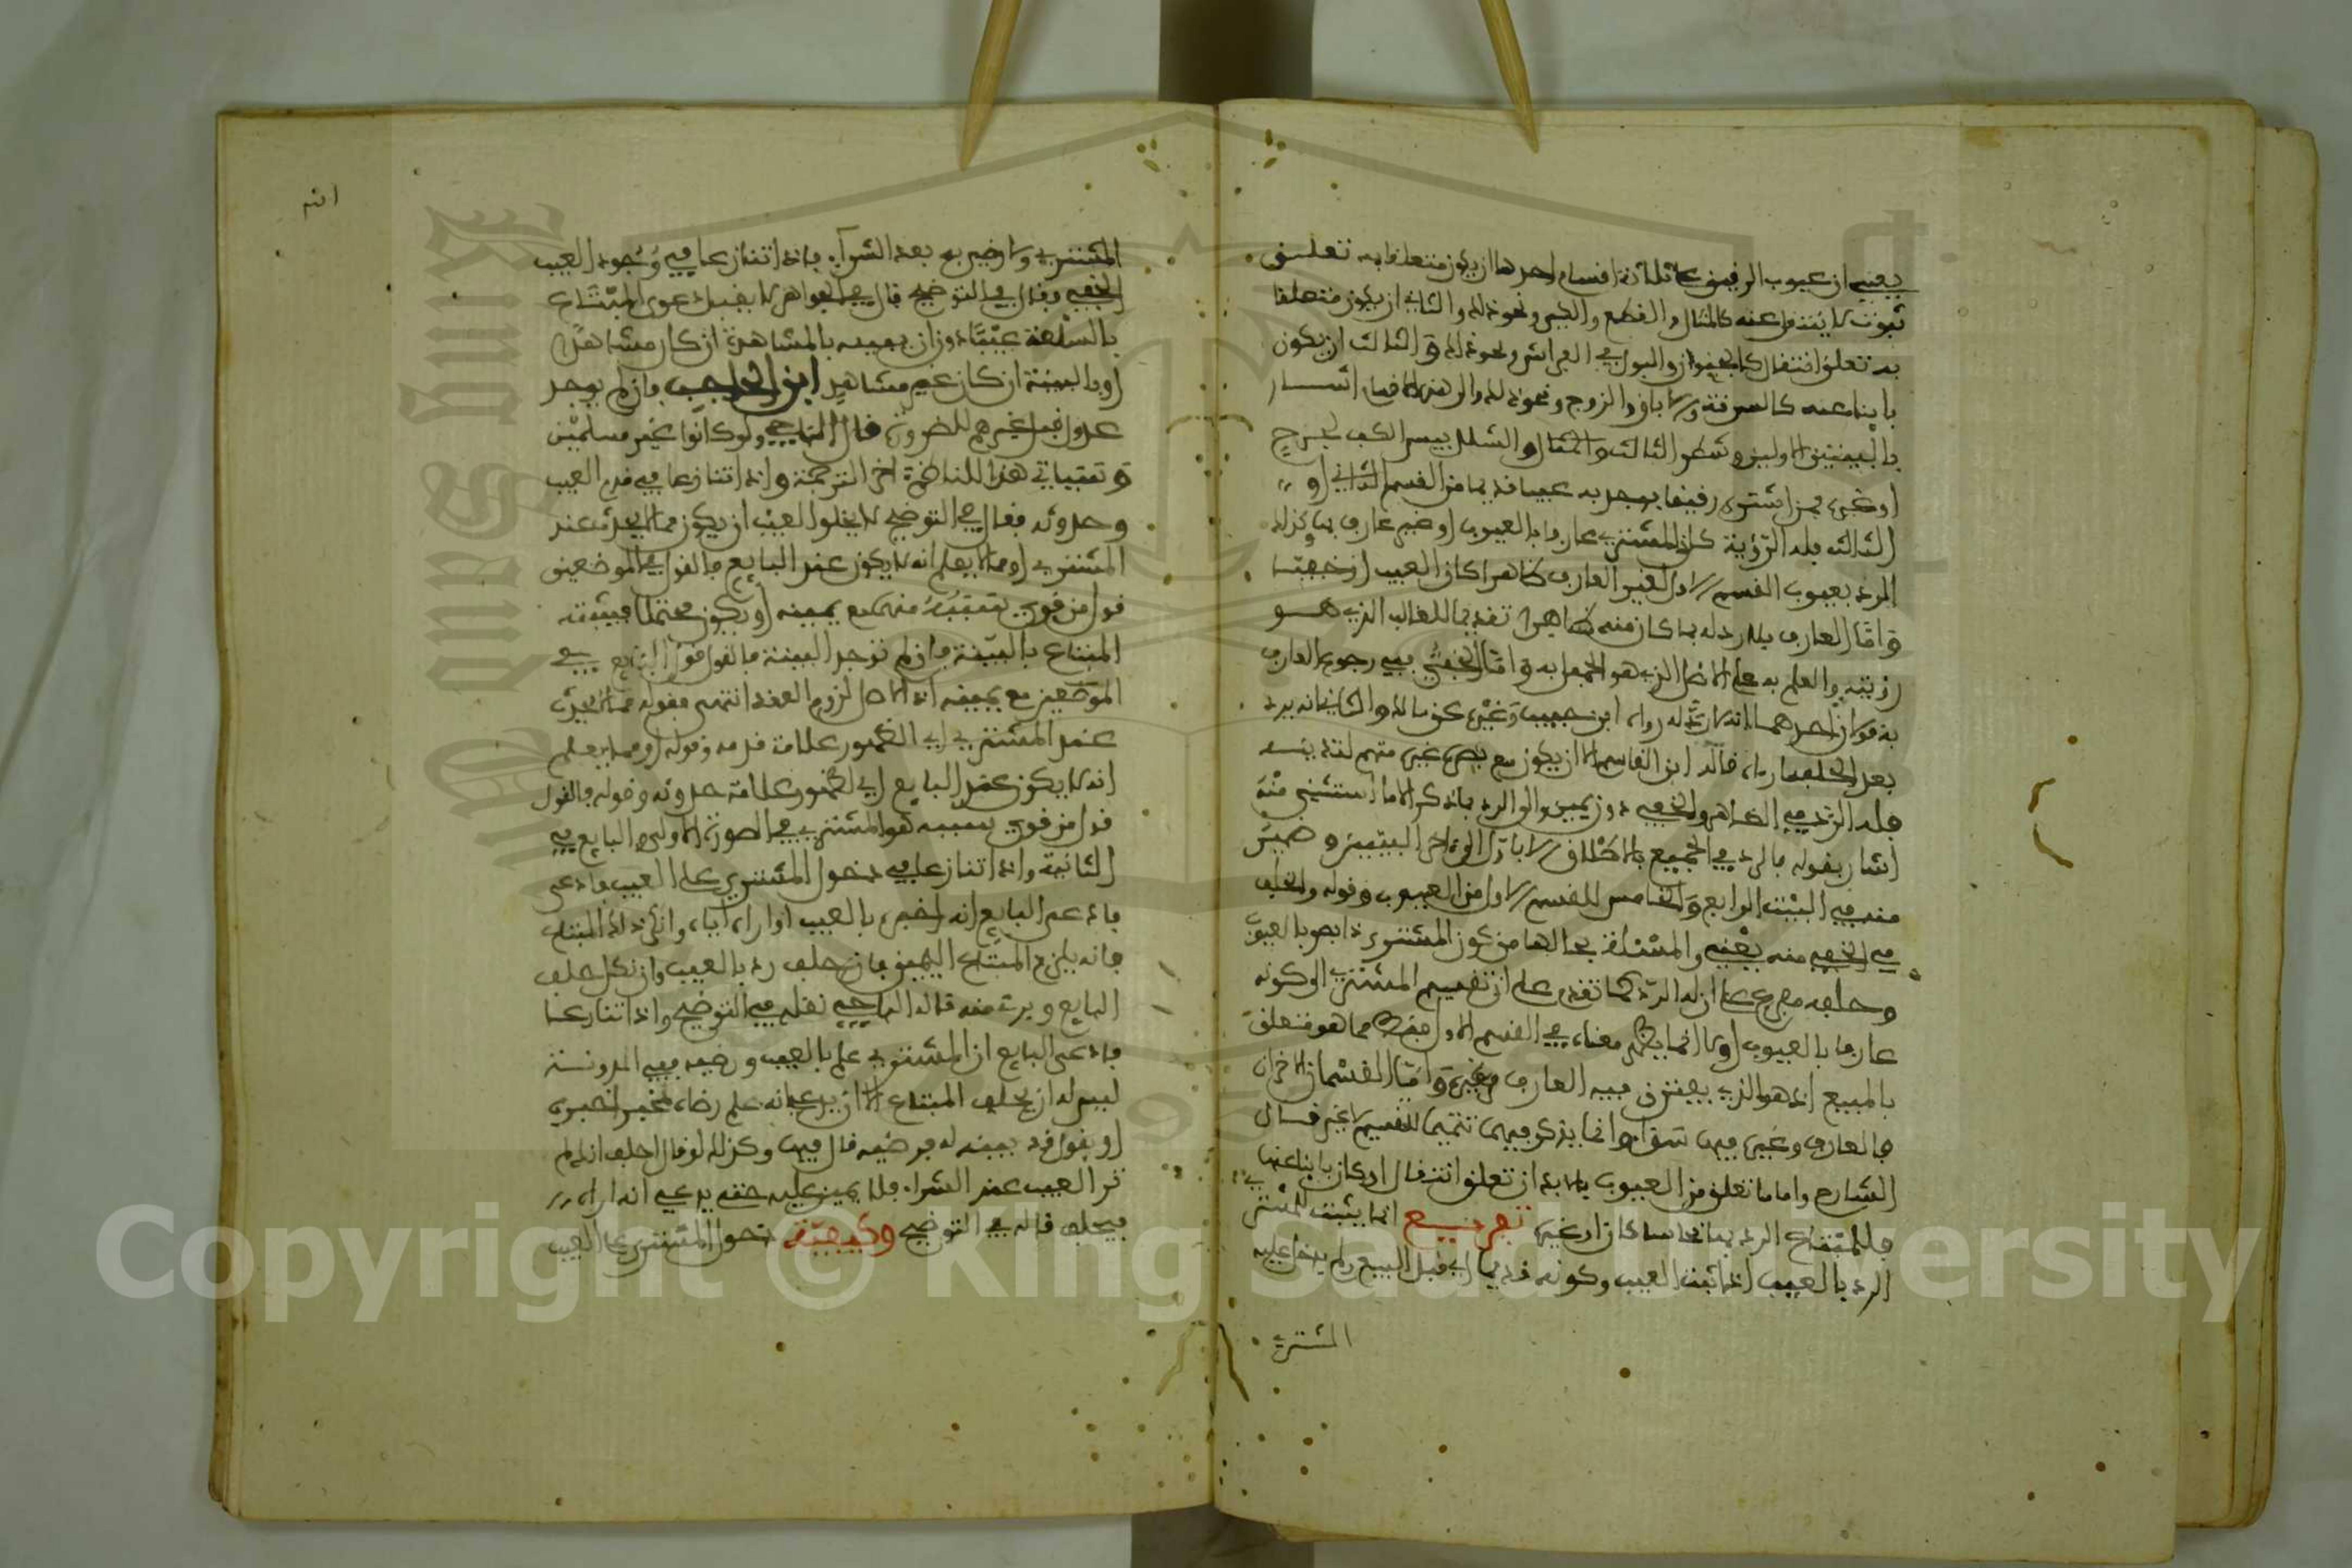 يعني ان عيوب الرقيق على ثلاثة اقسام احدها ان يكون متعلقا به تعلق
ثبوت لا ينتقل عنه كالشلل والقطع والكي ونحو ذلك والثاني ان يكون متعلقا
به تعلق انتقال كالجنون والبول في الفراش ونحو ذلك والثالث ان يكون
باينا عنه كالسرقة والاباق والزوج ونحو ذلك والى هذه الاقسام اشار
بالبيتين الاولين وشطر الثالث والشلل يبس الكف لجرح
او غيره فمن اشترى رقيقا يوجد به عيب قديما من القسم الثاني او
الثالث فله الرؤية كان المشتري عارفا بالعيوب او غير عارف بها وكذلك
الرد بعيوب القسم الاول لغير العارف ظاهرا كان العيب او خفيا
واما العارف فلا رد له بما كان منه ظاهرا تقديما للغالب الذي هو
رؤيته والعلم به على الاصل الذي هو الجهل به واما الخفي ففي رجوع العارف
به قولان احدهما انه لا رد له رواه ابن حبيب وغيره عن مالك والثاني انه يرد
بعد الحلف ما رءاه قاله ابن القاسم الا ان يكون مع بصره غير متهم لتدينه
فله الرد في الظاهر والخفي دون يمين والى الرد بما ذكر الا ما استثني منه
اشار بقوله فالرد في الجميع بالاطلاق الاباة الى ءاخر البيتين وضمير
منه في البيت الرابع والخامس للقسم الاول من العيوب وقوله والخلف
في الخفي منه يعني والمسئلة بحالها من كون المشتري ذا بصر بالعيوب
وحلفه مفرع على ان له الرد كما تقدم على ان تقسيم المشتري الى كونه
عارفا بالعيوب او لا انما يظهر معناه في القسم الاول فقط مما هو متعلق
بالمبيع اذ هو الذي يفترق فيه العارف وغيره واما القسمان الاخران
فالعارف وغيره فيهما سواء وانما يذكر فيهما تتميما للتقسيم لا غير قال
الشارح واما ما تعلق من العيوب بالابدان تعلق انتقال او كان باينا عنها
فللمبتاع الرد بها نخاسا كان او غيره تفريع انما يثبت للمشتري
الرد بالعيب اذا ثبت العيب وكونه قديما اي قبل البيع ولم يدخل عليه
المشتري
المشتري ولا رضي به بعد الشراء فاذا تنازعا في وجود العيب
الخفي وقال في التوضيح قال في الجواهر لا يقبل دعوى المبتاع
بالسلعة عيبا دون ان يعينه بالمشاهدة ان كان مشاهدا
او بالبينة ان كان غير مشاهد ابن الحاجب فان لم يوجد
عدول قبل غيرهم للضرورة قال الباجي ولو كانوا غير مسلمين
وتقييدات هذا للناظم اخر الترجمة واذا تنازعا في قدم العيب
وحدوثه فقال في التوضيح لا يخلو العيب ان يكون مما لا يحدث عند
المشتري او مما يعلم انه لا يكون عند البايع فالقول في الموضعين
قول من قوي سببه منهما مع يمينه او يكون محتملا فيثبته
المبتاع بالبينة فان لم توجد البينة فالقول قول البايع في
الموضعين مع يمينه اذ الاصل لزوم العقد انتهى فقوله مما لا يحدث
عند المشتري اي لظهور علامة قدمه وقوله او مما يعلم
انه لا يكون عند البايع اي لظهور علامة حدوثه وقوله فالقول
قول من قوي سببه هو المشتري في الصورة الاولى والبايع في
الثانية واذا تنازعا في دخول المشتري على العيب فادعى
فادعى البايع انه اخبره بالعيب او اراه اياه وانكر ذلك المبتاع
فانه يلزم المبتاع اليمين فان حلف رد بالعيب وان نكل حلف
البايع وبرئ منه قاله الباجي نقله في التوضيح واذا تنازعا
فادعى البايع ان المشتري علم بالعيب ورضيه ففي المدونة
ليس له ان يحلف المبتاع الا ان يدعي انه علم رضاه لمخبر اخبره
او يقول قد بينته له فرضيه قال فيها وكذلك لو قال احلف انك لم
تر العيب عند الشراء فلا يمين عليه حتى يدعي انه اراه
فيحلف قاله في التوضيح وكيفية دخول المشتري على العيب